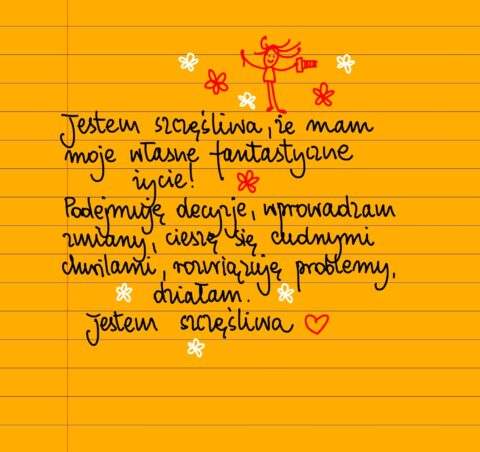 Jestem szczęśliwa, że mam
moje własne fantastyczne
życie!
Podejmuję decyzje, wprowadzam
zmiany, cieszę się cudnymi
chwilami, rozwiązuję problemy,
działam.
Jestem szczęśliwa